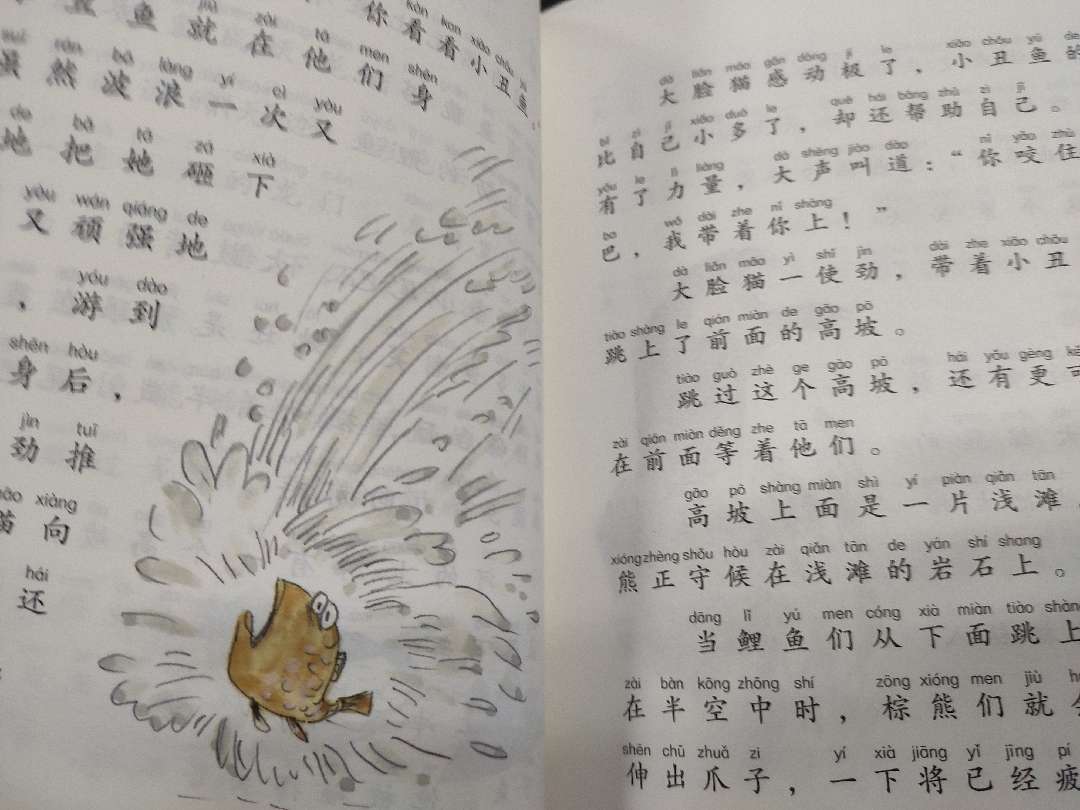 kàn kan xiǎo chǒu yú
你看看小丑鱼，
jiù zài tā men shēn
鱼就在他们身
suī rán bō làng yí cì yòu
虽然波浪一次又
de bǎ tā zá xià
地把她砸下
yòu wán qiáng de
又顽强地
yóu dào
，游到
shēn hòu
身后，
jìn tuī
劲推
māo xiàng
猫向
hái
还
dà liǎn māo gǎn dòng jí le xiǎo chǒu yú de
大脸猫感动极了，小丑鱼的
bǐ zì jǐ xiǎo duō le què hái bāng zhù zì jǐ
比自己小多了，却还帮助自己。
yǒu le lì liàng dà shēng jiào dào nǐ yǎo zhù
有了力量，大声叫道：“你咬住
ba wǒ dài zhe nǐ shàng
巴，我带着你上！”
dà liǎn māo yì shǐ jìn dài zhe xiǎo chǒu
大脸猫一使劲，带着小丑
tiào shàng le qián miàn de gāo pō
跳上了前面的高坡。
tiào guò zhè ge gāo pō hái yǒu gèng kě
跳过这个高坡，还有更可
zài qián miàn děng zhe tā men
在前面等着他们。
gāo pō shàng miàn shì yí piàn qiǎn tān
高坡上面是一片浅滩，
xióng zhèng shǒu hòu zài qiǎn tān de yán shí shang
熊正守候在浅滩的岩石上。
dāng lǐ yú men cóng xià miàn tiào shàng
当鲤鱼们从下面跳上
zài bàn kōng zhōng shí zōng xióng men jiù
在半空中时，棕熊们就
shēn chū zhuǎ zi yí xià jiāng yǐ jīng pí
伸出爪子，一下将已经疲